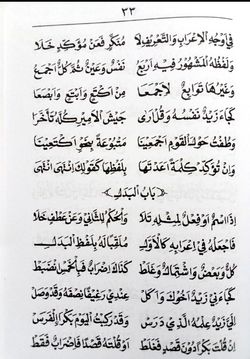 ٣٣
فِي أَوْجُهِ الْاِعْرَابِ وَالتَّعْرِيْفِ لَا مُنَكَّرٍ فَعَنْ مُؤَكَّدٍ خَلَا
وَلَفْظُهُ الْمَشْهُوْرُ فِيْهِ اَرْبَعُ نَفْسٌ وَعَيْنٌ ثُمَّ كُلٌّ اَجْمَعُ
وَغَيْرُهَا تَوَابِعٌ لِاَجْمَعَا مِنْ اَكْتَعٍ وَاَبْتَعٍ وَاَبْصَعَا
كَجَاءَ زَيْدٌ نَفْسُهُ وَقُلْ اَرَى جَيْشَ الْاَمِيْرِ كُلَّهُ تَأَخَّرَا
وَطُفْتُ حَوْلَ الْقَوْمِ اَجْمَعِيْنَا مَتْبُوْعَةً بِنَحْوِ اَكْتَعِيْنَا
وَاِنْ تُؤَكِّدْ كِلْمَةً اَعَدْتَهَا بِلَفْظِهَا كَقَوْلِكَ انْتَهَى انْتَهَى
﴿ بَابُ الْبَدَلِ ﴾
اِذَا اسْمٌ اَوْ فِعْلٌ لِمِثْلِهِ تَلَا وَالْحُكْمُ لِلثَّانِيْ وَعَنْ عَطْفٍ خَلَا
فَاجْعَلْهُ فِيْ اِعْرَابِهِ كَالْاَوَّلِ مُلَقِّبًا لَهُ بِلَفْظِ الْبَدَلِ
كُلٌّ وَبَعْضٌ وَاشْتِمَالٌ وَغَلَطْ كَذَاكَ اِضْرَابٌ فَبِالْخَمْسِ انْضَبَطْ
كَجَاءَنِيْ زَيْدٌ اَخُوْكَ وَاَكَلْ عِنْدِيْ رَغِيْفًا نِصْفَهُ وَقَدْ وَصَلْ
اِلَيَّ زَيْدٌ عِلْمُهُ الَّذِيْ دَرَسْ وَقَدْ رَكِبْتُ الْيَوْمَ بَكْرًا الْفَرَسْ
اِنْ قُلْتَ بَكْرًا دُوْنَ قَصْدٍ فَغَلَطْ اَوْ قُلْتَهُ قَصْدًا فَاِضْرَابٌ فَقَطْ